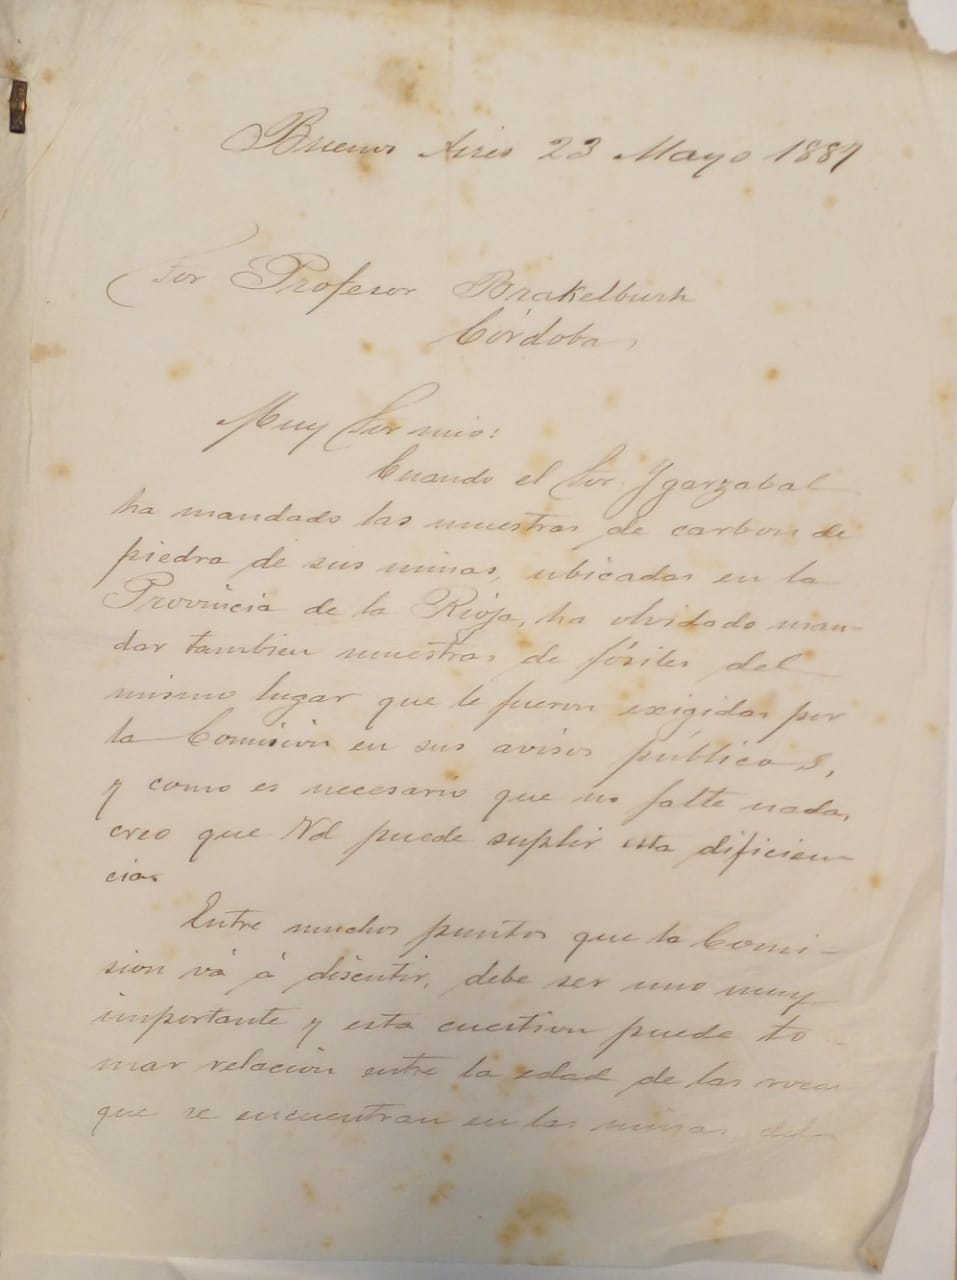 Buenos Aires 23 Mayo 1887
Sor Profesor Brakelbush
Córdoba
Muy Sor mio:
Cuando el Sor. Ygarzabal
ha mandado las muestras de carbon de
piedra de sus minas, ubicadas en la
Provincia de la Rioja, ha olvidado man-
dar tambien muestras de fósiles del
mismo lugar que le fueron exigidas por
la Comision en sus avisos públicos,
y como es necesario que no falte nada,
creo que Vd puede suplir esta dificien
cia.
Entre muchos puntos que la Comi-
sion vá á discutir, debe ser uno muy
importante y esta cuestion puede to
mar relacion entre la edad de las rocas
que se encuentran en las minas del